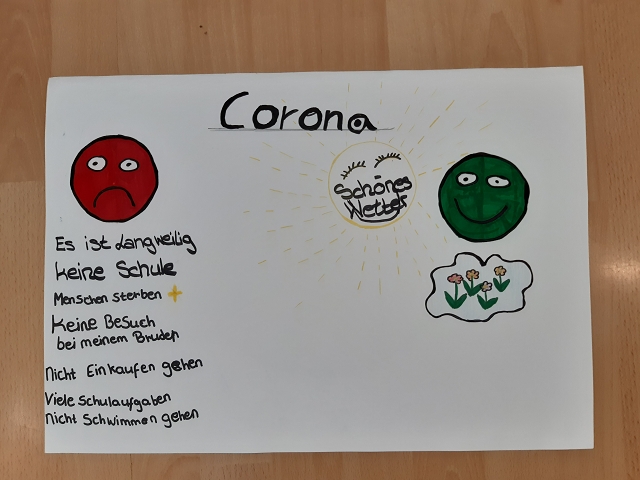 Corona
Schönes
Wetter
Es ist Langweilig
keine Schule
Menschen sterben
Keine Besuch
bei meinem Bruder
Nicht Einkaufen gehen
Viele Schulaufgaben
Nicht Schwimmen gehen